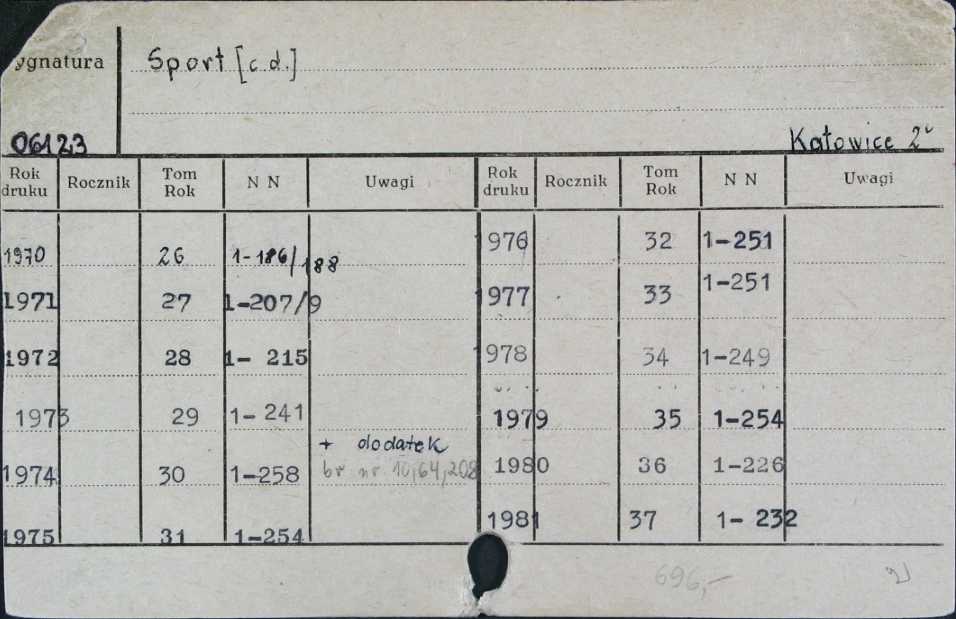 ygnatura
Sport [c.d.]
06123
Katowice 2°
Rok druku Rocznik Tom Rok N N Uwagi Rok druku Rocznik Tom Rok N N Uwagi
1970 26 1-186/188
1971 27 1-207/9
1972 28 1- 215
1973 29 1-241
+ dodatek
1974 30 1-258 br nr 10,64,208
1975 31 1-254
1976 32 1-251
1977 33 1-251
978 34 1-249
1979 35 1-254
1980 36 1-226
1981 37 1- 232
696,-